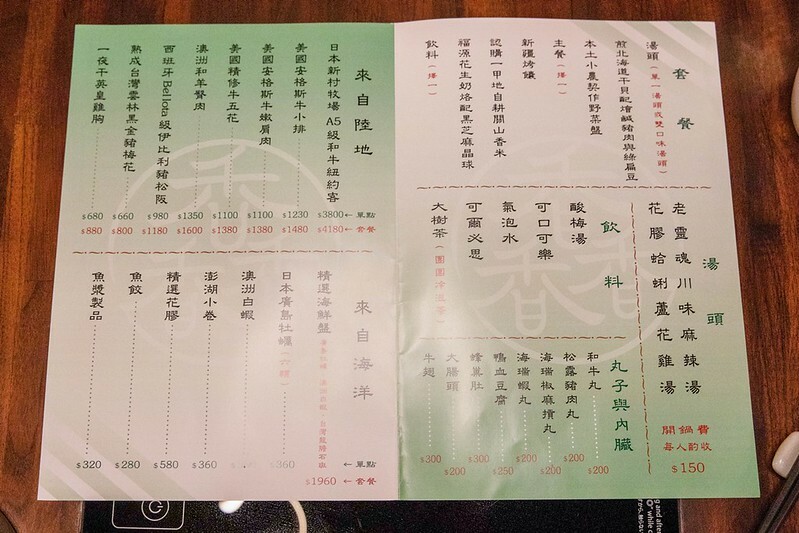 套餐
湯頭（單一湯頭或雙口味湯頭）
煎北海道干貝配燴鹹豬肉與綠扁豆
本土小農契作野菜盤
主餐（擇一）
新疆烤饢
認購一甲地自耕關山香米
福源花生奶烙配黑芝麻晶球
飲料（擇一）
湯頭
老靈魂川味麻辣湯
花膠蛤蜊蘆花雞湯
開鍋費
每人酌收
$150
飲料
酸梅湯
可口可樂
氣泡水
可爾必思
大樹茶（團團冷泡茶）
丸子與內臟
和牛丸 $200
松露豬肉丸 $200
海瑞椒麻摃丸 $200
海瑞蝦丸 $200
鴨血豆腐 $250
蜂巢肚 $200
大腸頭 $200
牛翅 $300
來自陸地
←單點
←套餐
日本新村牧場 A5級和牛紐約客 $3800 $4180
美國安格斯牛小排 $1230 $1480
美國安格斯牛嫩肩肉 $1100 $1380
美國精修牛五花 $1100 $1380
澳洲和羊臀肉 $1350 $1600
西班牙Bellota級伊比利豬松阪 $980 $1180
熟成台灣雲林黑金豬梅花 $660 $800
一夜干英皇雞胸 $680 $880
來自海洋
←單點
←套餐
精選海鮮盤
$1960
日本廣島牡蠣（六顆） $360
澳洲白蝦
澎湖小卷 $360
精選花膠 $580
魚餃 $280
魚漿製品 $320